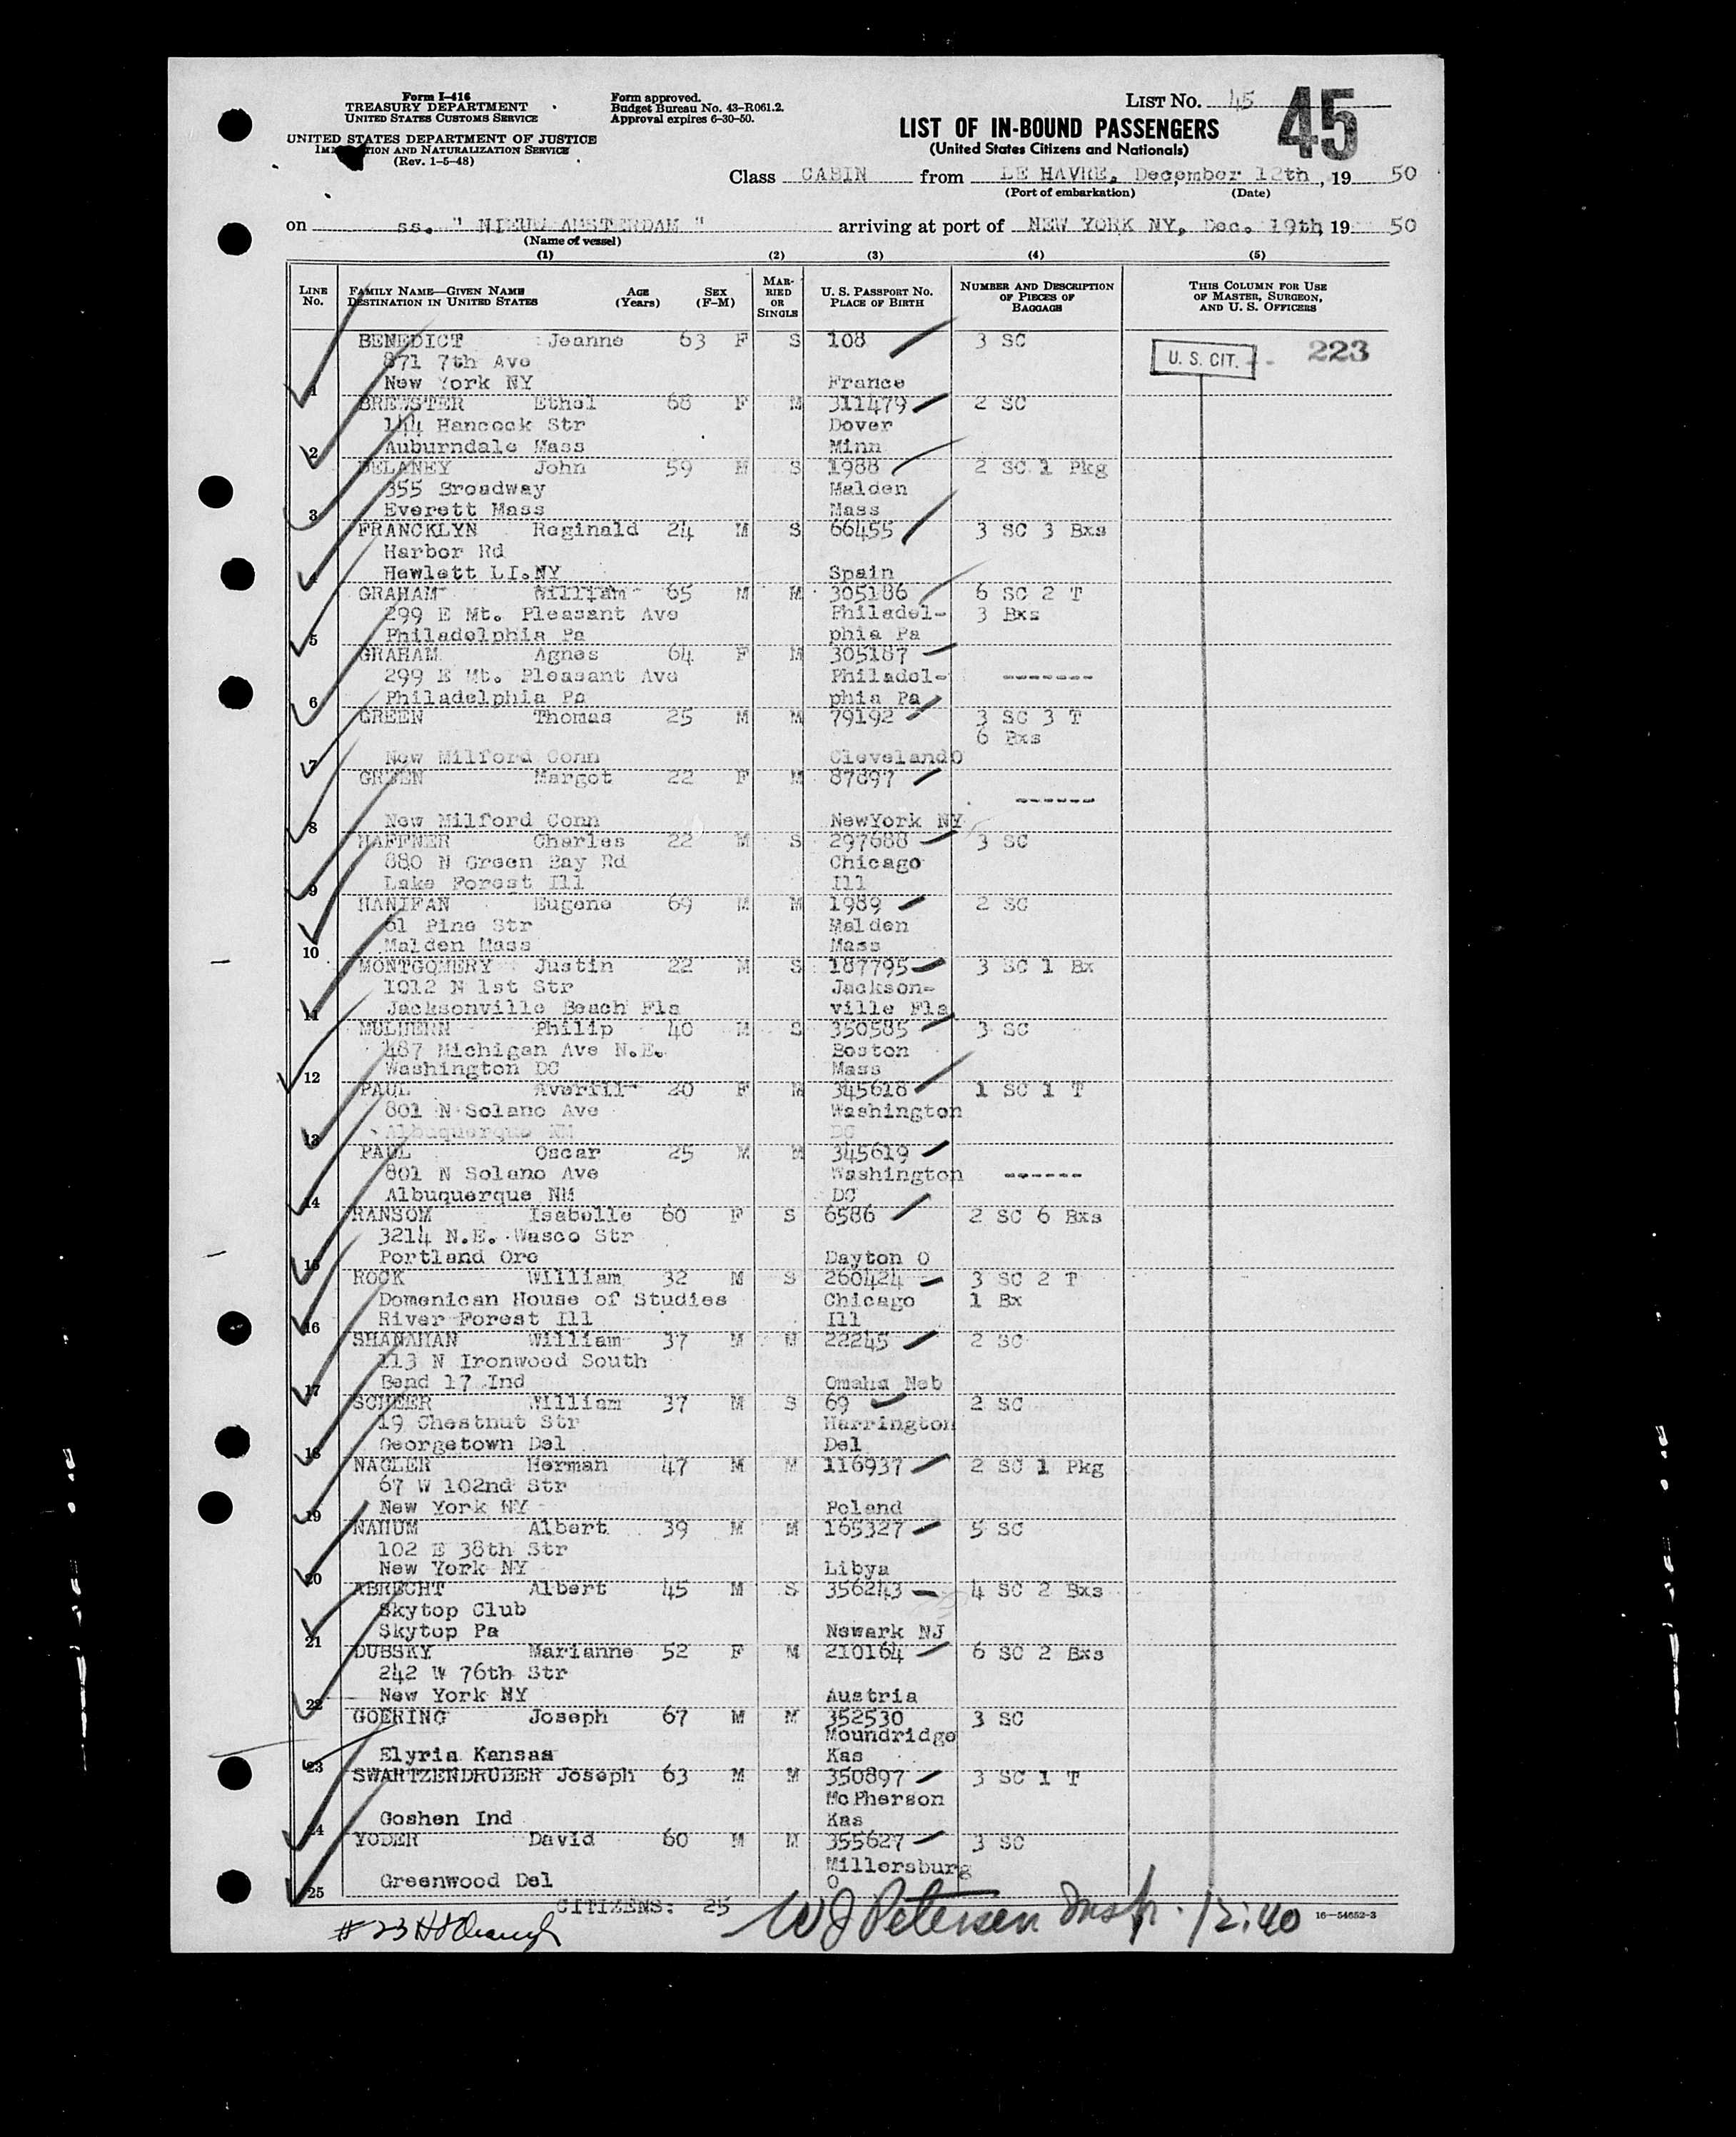 Form I-416
TREASURY DEPARTMENT
UNITED STATES CUSTOMS SERVICE
UNITED STATES DEPARTMENT OF JUSTICE
IMMIGRATION AND NATURALIZATION SERVICE
(Rev. 1-5-48)
Form approved.
Budget Bureau No. 43-R061.2.
Approval expires 6-30-50.
LIST No. 45
45
LIST OF IN-BOUND PASSENGERS
(United States Citizens and Nationals)
Class CABIN from LE HAVRE, December 12th, 19 50
(Port of embarkation) (Date)
on ss. " NIEUW AMSTERDAM " arriving at port of NEW YORK NY, Dec. 19th, 19 50
(Name of vessel)
(1) (2) (3) (4) (5)
LINE No. FAMILY NAME—GIVEN NAME DESTINATION IN UNITED STATES AGE (Years) SEX (F-M) MARRIED OR SINGLE U. S. PASSPORT No. PLACE OF BIRTH NUMBER AND DESCRIPTION OF PIECES OF BAGGAGE THIS COLUMN FOR USE OF MASTER, SURGEON, AND U. S. OFFICERS
BENEDICT Jeanne 63 F S 108 3 SC U. S. CIT. 223
871 7th Ave
1 New York NY France
BREWSTER Ethel 68 F M 311479 2 SC
144 Hancock Str Dover
2 Auburndale Mass Minn
DELANEY John 59 M S 1988 2 SC 1 Pkg
355 Broadway Malden
3 Everett Mass Mass
FRANCKLYN Reginald 24 M S 66455 3 SC 3 Bxs
Harbor Rd
4 Hewlett LI.NY Spain
GRAHAM William 65 M M 305186 6 SC 2 T
299 E Mt. Pleasant Ave Philadel- 3 Bxs
5 Philadelphia Pa phia Pa
GRAHAM Agnes 64 F M 305187
299 E Mt. Pleasant Ave Philadel- -------
6 Philadelphia Pa phia Pa
GREEN Thomas 25 M M 79192 3 SC 3 T
6 Bxs
7 New Milford Conn ClevelandO
GREEN Margot 22 F M 87897
------
8 New Milford Conn NewYork NY
HAFFNER Charles 22 M S 297688 3 SC
880 N Green Bay Rd Chicago
9 Lake Forest Ill Ill
HANIFAN Eugene 69 M M 1989 2 SC
61 Pine Str Malden
10 Malden Mass Mass
MONTGOMERY Justin 22 M S 187795 3 SC 1 Bx
1012 N 1st Str Jackson-
11 Jacksonville Beach Fla ville Fla
MULHERN Philip 40 M S 350585 3 SC
487 Michigan Ave N.E. Boston
12 Washington DC Mass
PAUL Averill 20 F M 345618 1 SC 1 T
801 N Solano Ave Washington
13 Albuquerque NM DC
PAUL Oscar 25 M M 345619
801 N Solano Ave Washington ------
14 Albuquerque NM DC
RANSOM Isabelle 60 F S 6586 2 SC 6 Bxs
3214 N.E. Wasco Str
15 Portland Ore Dayton O
ROCK William 32 M S 260424 3 SC 2 T
Domenican House of Studies Chicago 1 Bx
16 River Forest Ill Ill
SHANAHAN William 37 M M 22245 2 SC
113 N Ironwood South
17 Bend 17 Ind Omaha Neb
SCHEER William 37 M S 69 2 SC
19 Chestnut Str Harrington
18 Georgetown Del Del
NAGLER Herman 47 M M 116937 2 SC 1 Pkg
67 W 102nd Str
19 New York NY Poland
NAHUM Albert 39 M M 165327 5 SC
102 E 38th Str
20 New York NY Libya
ABRECHT Albert 45 M S 356243 4 SC 2 Bxs
Skytop Club
21 Skytop Pa Newark NJ
DUBSKY Marianne 52 F M 210164 6 SC 2 Bxs
242 W 76th Str
22 New York NY Austria
GOERING Joseph 67 M M 352530 3 SC
Moundridge
23 Elyria Kansas Kas
SWARTZENDRUBER Joseph 63 M M 350897 3 SC 1 T
McPherson
24 Goshen Ind Kas
YODER David 60 M M 355627 3 SC
Millersburg
25 Greenwood Del O
CITIZENS: 25
#23 WJ Petersen Insp. 12:40
16—54652-3